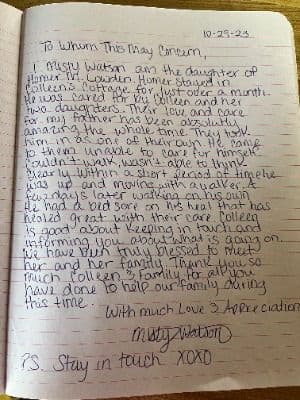 10-29-23
To Whom This May Concern,
I Misty Watson am the daughter of
Homer M. Lowden. Homer stayed in
Colleen's Cottage for just over a month.
He was cared for by Colleen and her
two daughters. Their love and care
for my father has been absolutely
amazing the whole time. They took
him in as one of their own. He came
to them unable to care for himself
couldn't walk, wasn't able to think
clearly. Within a short period of time he
was up and moving with a walker. A
few days later walking on his own
He had a bed sore on his heal that has
healed great with their care. Colleen
is good about keeping in touch and
informing you about what is going on.
We have been truly blessed to meet
her and her family. Thank you so
much Colleen & family for all you
have done to help our family during
this time.
With much Love & Appreciation
Misty Watson
PS. Stay in touch XOXO